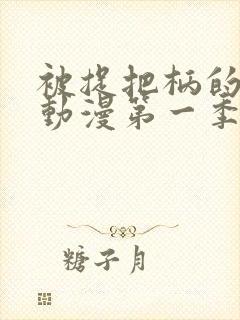 被捉把柄的
動漫第一季
糖子月